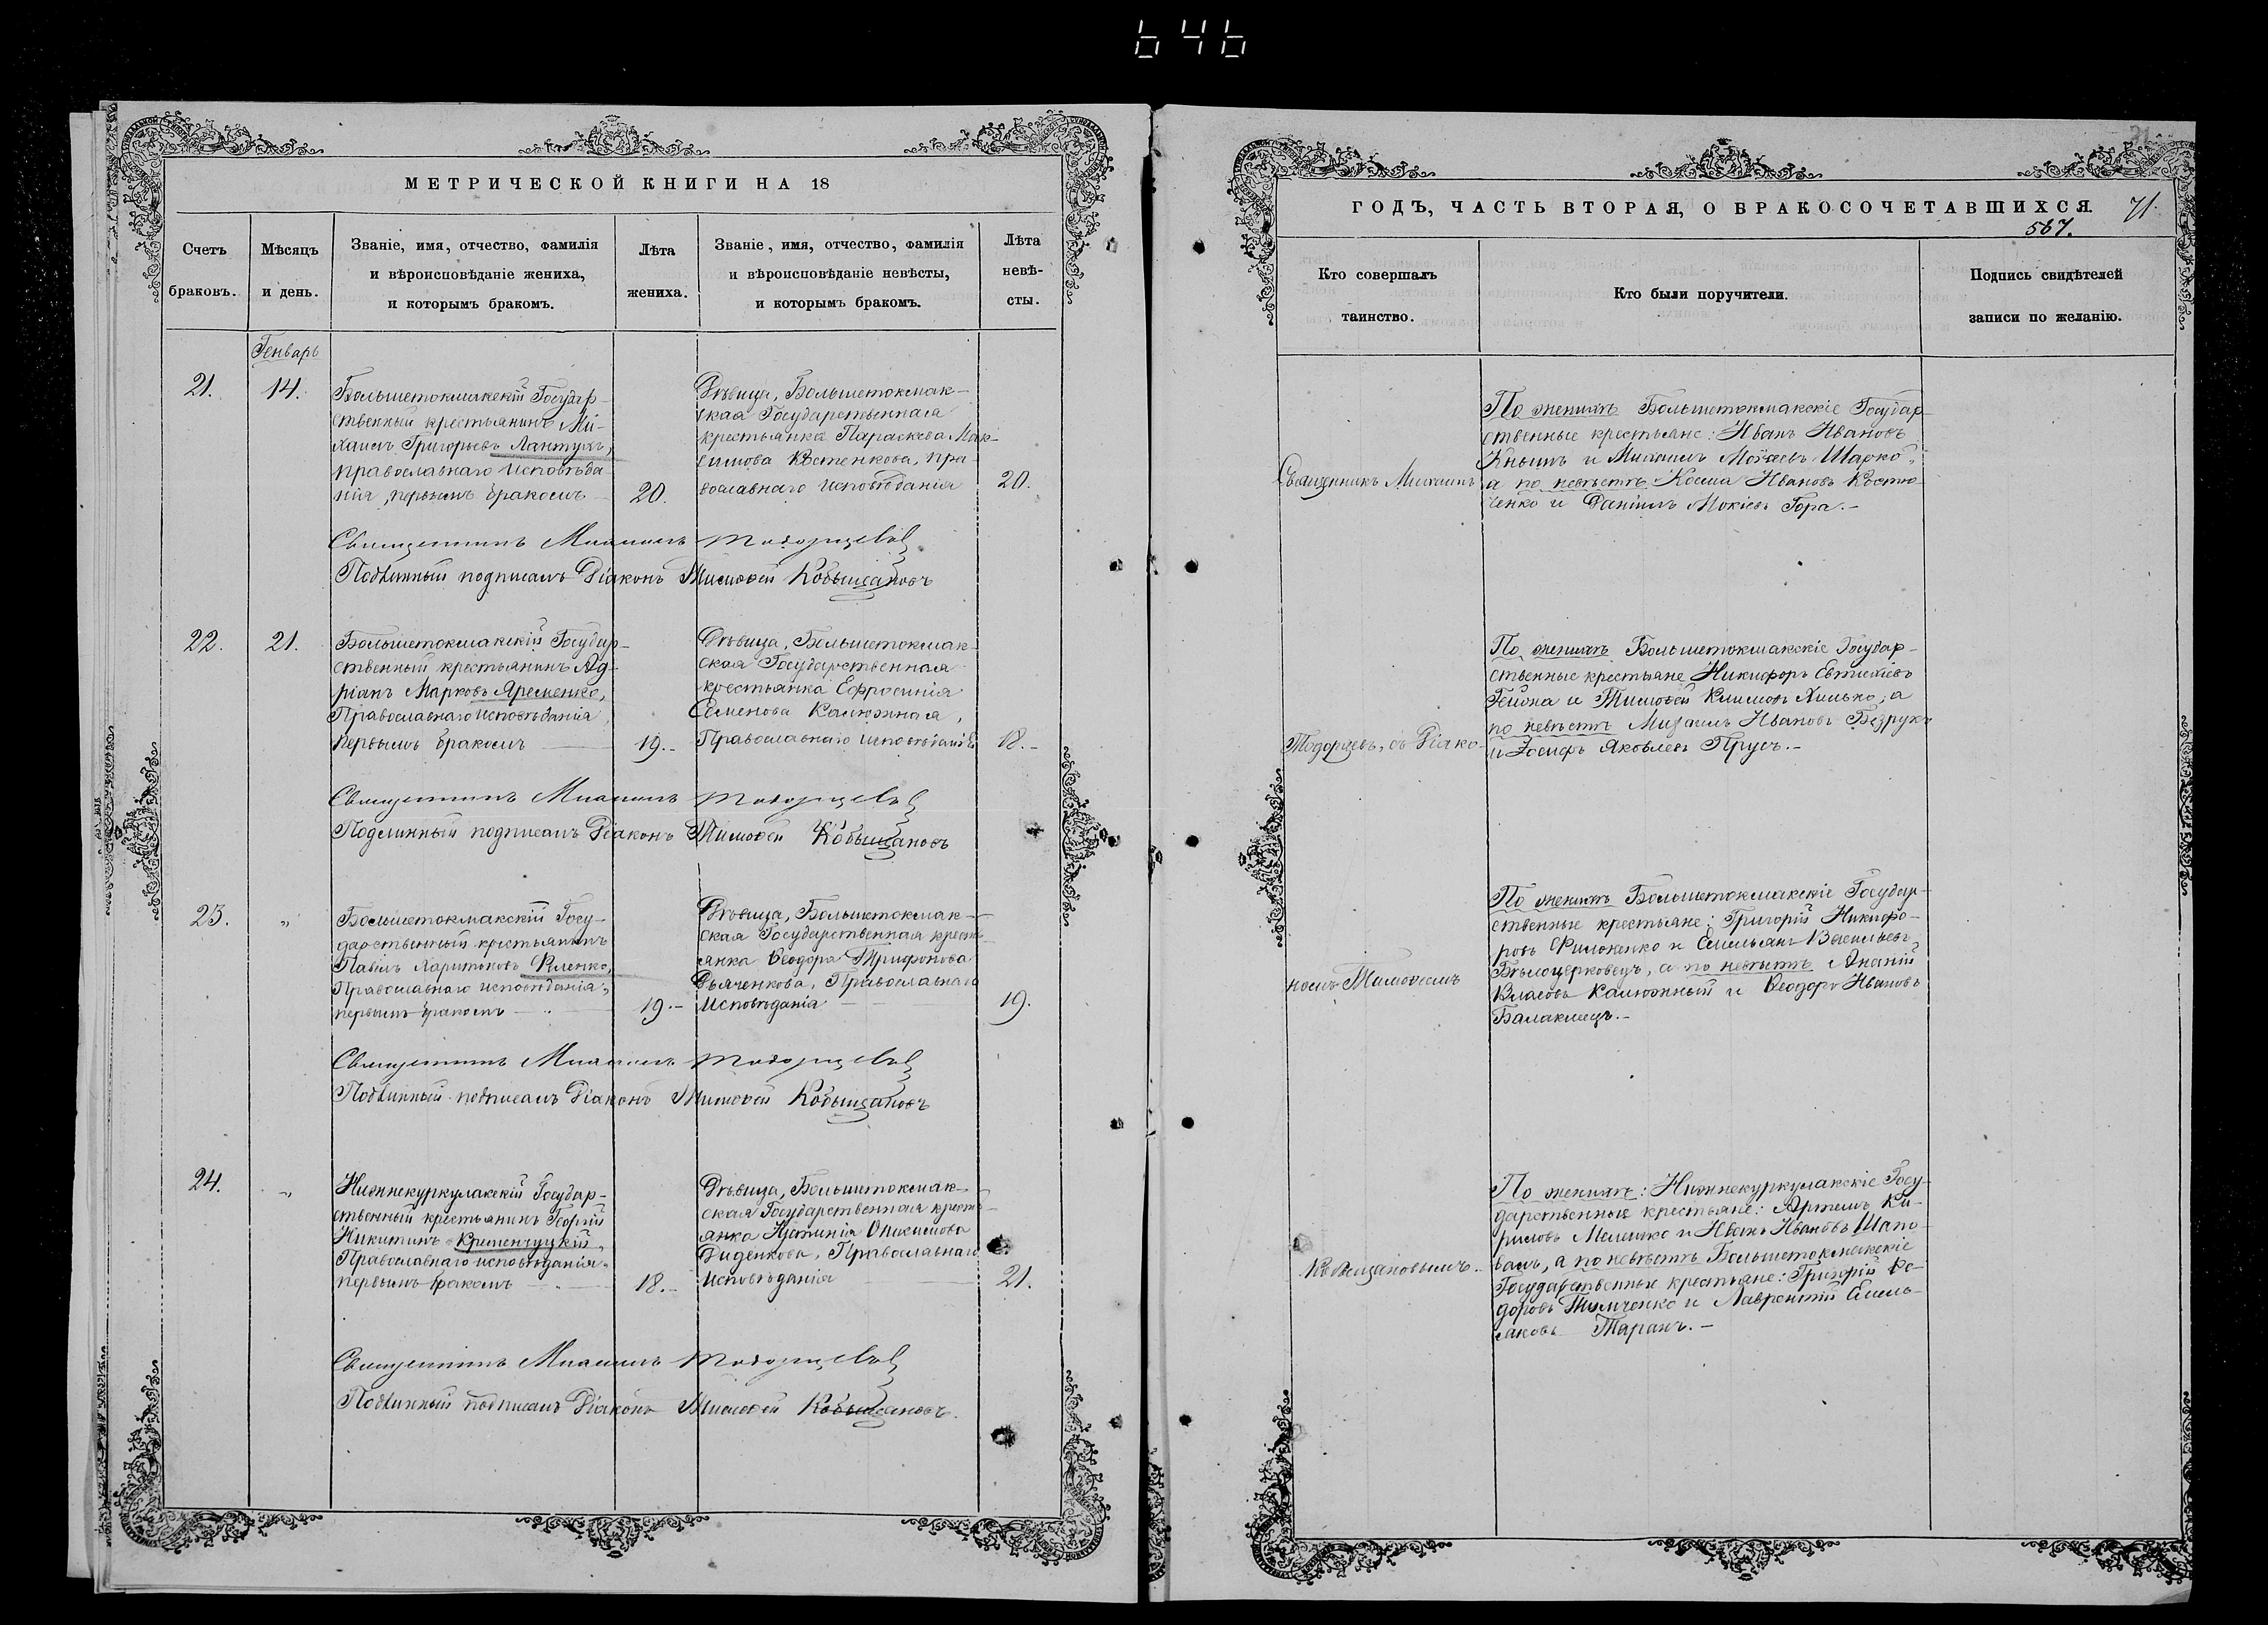 646
МЕТРИЧЕСКОЙ КНИГИ НА 18
Счетъ браковъ.
Мѣсяцъ и день.
Званіе, имя, отчество, фамилія
и вѣроисповѣданіе жениха,
и которымъ бракомъ.
Лѣта жениха.
Званіе, имя, отчество, фамилія
и вѣроисповѣданіе невѣсты,
и которымъ бракомъ.
Лѣта невѣ-
сты.
Генварь
21.
14.
Большетокмакскій Государ-
ственный крестьянинъ Ми-
хаилъ Григорьевъ Лантухъ,
православнаго исповѣда
нія, первымъ бракомъ
20.
Дѣвица, Большетокмак-
ская Государственная
крестьянка Параскева Мак-
симова Костенкова, пра-
вославнаго исповѣданія
20.
Священникъ Михаилъ Тодорцевъ
Подлинный подписалъ Діаконъ Тимоѳей Кобыщановъ
22.
21.
Большетокмакскій Государ-
ственный крестьянинъ Ад-
ріанъ Марковъ Яременко,
Православнаго исповѣданія,
первымъ бракомъ
19.-
Дѣвица, Большетокмак-
ская Государственная
крестьянка Ефросинія
Семенова Калюжная,
Православнаго исповѣданія
18.-
Священникъ Михаилъ Тодорцевъ
Подлинный подписалъ Діаконъ Тимоѳей Кобыщановъ
23.
"
Большетокмакскій Госу-
дарственный крестьянинъ
Павелъ Харитоновъ Филенко,
Православнаго исповѣданія,
первымъ бракомъ
19.-
Дѣвица, Большетокмак-
ская Государственная кресть-
янка Ѳеодора Трифонова
Дьяченкова, Православнаго
Исповѣданія
19.
Священникъ Михаилъ Тодорцевъ
Подлинный подписалъ Діаконъ Тимоѳей Кобыщановъ
24.
"
Нижнекуркулакскій Государ-
ственный крестьянинъ Георгій
Никитинъ Кременчуцкій,
Православнаго исповѣданія,
первымъ бракомъ
18.-
Дѣвица, Большетокмак-
ская Государственная кресть-
янка Іустинія Онисимова
Диденкова, Православнаго
исповѣданія
21.
Священникъ Михаилъ Тодорцевъ
Подлинный подписалъ Діаконъ Тимоѳей Кобыщановъ.
ГОДЪ, ЧАСТЬ ВТОРАЯ, О БРАКОСОЧЕТАВШИХСЯ.
71.
567.
Кто совершалъ таинство.
Кто были поручители.
Подпись свидѣтелей
записи по желанію.
Священникъ Михаилъ
По женихѣ Большетокмакскіе Государ-
ственные крестьяне: Иванъ Ивановъ
Кнышъ и Михаилъ Моѵсеевъ Шарко,
а по невѣстѣ Косма Ивановъ Костю-
ченко и Даніилъ Мокіевъ Гора.-
Тодорцевъ, съ Діако-
По женихѣ Большетокмакскіе Государ-
ственные крестьяне Никифоръ Евтихіевъ
и Тимоѳей Климовъ Хилько; а
по невѣстѣ Михаилъ Ивановъ Безрукъ
и Іосифъ Яковлевъ Прусъ.-
номъ Тимоѳеемъ
По женихѣ Большетокмакскіе Государ-
ственные крестьяне: Григорій Никифо-
ровъ Филоненко и Емельянъ Васильевъ
Бѣлоцерковецъ, а по невѣстѣ Ананій
Власовъ Калюжный и Ѳеодоръ Ивановъ
Балаклеецъ.-
Кобыщановымъ.
По женихѣ: Нижнекуркулакскіе Госу-
дарственные крестьяне: Артемъ Ки-
риловъ Мелешко и Иванъ Ивановъ Шапо-
валъ, а по невѣстѣ Большетокмакскіе
Государственные крестьяне: Григорій Ѳе-
доровъ Тимченко и Лаврентій Емель-
яновъ Таранъ.-